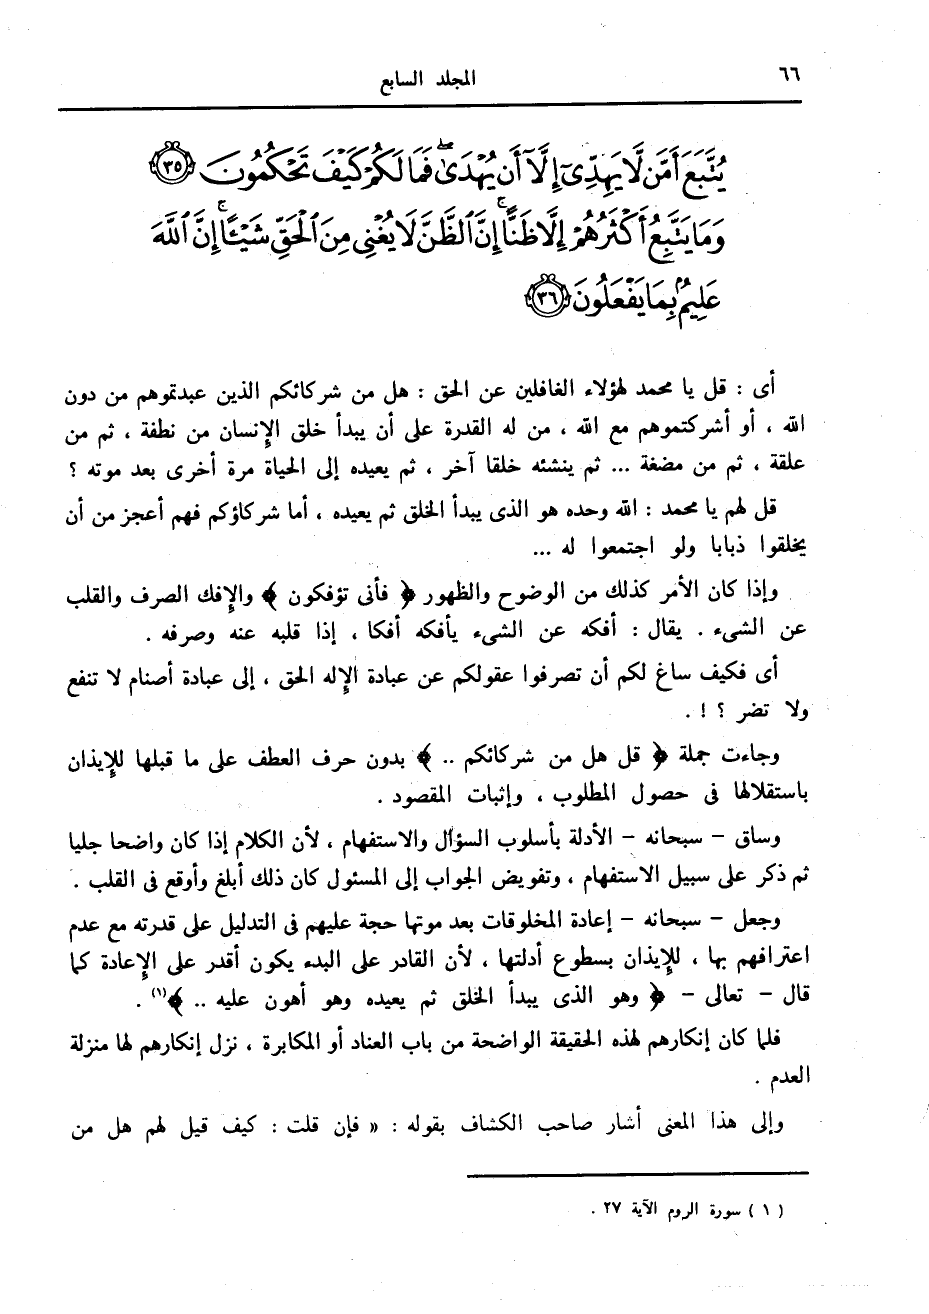 ٦٦
المجلد السابع
يُتَّبَعَ أَمَّن لَّا يَهِدِّىٓ إِلَّآ أَن يُهْدَىٰۖ فَمَا لَكُمْ كَيْفَ تَحْكُمُونَ ﴿٣٥﴾
وَمَا يَتَّبِعُ أَكْثَرُهُمْ إِلَّا ظَنًّاۚ إِنَّ ٱلظَّنَّ لَا يُغْنِى مِنَ ٱلْحَقِّ شَيْـًٔاۚ إِنَّ ٱللَّهَ
عَلِيمٌۢ بِمَا يَفْعَلُونَ ﴿٣٦﴾
أى : قل يا محمد لهؤلاء الغافلين عن الحق : هل من شركائكم الذين عبدتموهم من دون
الله ، أو أشركتموهم مع الله ، من له القدرة على أن يبدأ خلق الإنسان من نطفة ، ثم من
علقة ، ثم من مضغة ... ثم ينشئه خلقا آخر ، ثم يعيده إلى الحياة مرة أخرى بعد موته ؟
قل لهم يا محمد : الله وحده هو الذى يبدأ الخلق ثم يعيده ، أما شركاؤكم فهم أعجز من أن
يخلقوا ذبابا ولو اجتمعوا له ...
وإذا كان الأمر كذلك من الوضوح والظهور ﴿ فأنى تؤفكون ﴾ والإفك الصرف والقلب
عن الشىء . يقال : أفكه عن الشىء يأفكه أفكا ، إذا قلبه عنه وصرفه .
أى فكيف ساغ لكم أن تصرفوا عقولكم عن عبادة الإله الحق ، إلى عبادة أصنام لا تنفع
ولا تضر ؟ ! .
وجاءت جملة ﴿ قل هل من شركائكم .. ﴾ بدون حرف العطف على ما قبلها للإيذان
باستقلالها فى حصول المطلوب ، وإثبات المقصود .
وساق – سبحانه – الأدلة بأسلوب السؤال والاستفهام ، لأن الكلام إذا كان واضحا جليا
ثم ذكر على سبيل الاستفهام ، وتفويض الجواب إلى المسئول كان ذلك أبلغ وأوقع فى القلب .
وجعل – سبحانه – إعادة المخلوقات بعد موتها حجة عليهم فى التدليل على قدرته مع عدم
اعترافهم بها ، للإيذان بسطوع أدلتها ، لأن القادر على البدء يكون أقدر على الإعادة كما
قال – تعالى – ﴿ وهو الذى يبدأ الخلق ثم يعيده وهو أهون عليه .. ﴾(١) .
فلما كان إنكارهم لهذه الحقيقة الواضحة من باب العناد أو المكابرة ، نزل إنكارهم لها منزلة
العدم .
وإلى هذا المعنى أشار صاحب الكشاف بقوله : « فإن قلت : كيف قيل لهم هل من
( ١ ) سورة الروم الآية ٢٧ .